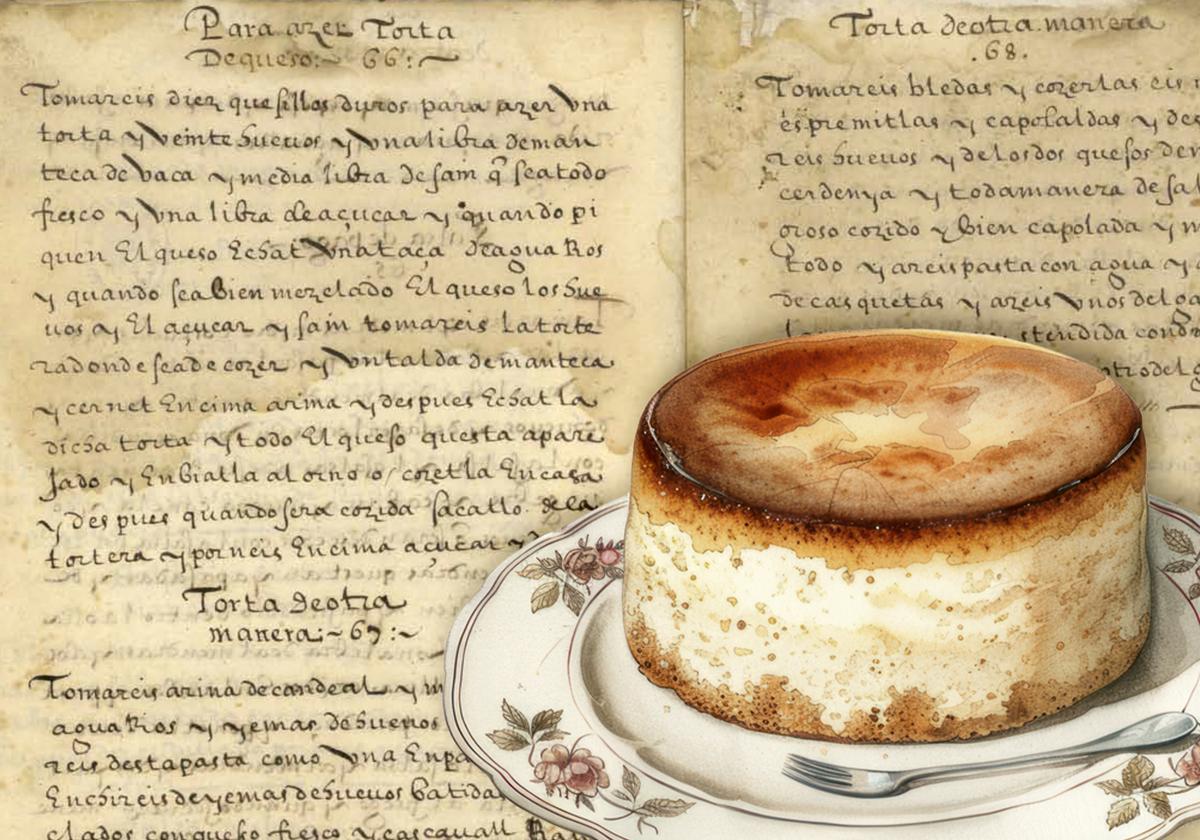 Para azer Torta
Dequeso:~ 66:~
Tomareis diez quesillos duros para azer Vna
torta y Veinte hueuos y Vna libra de man
teca de Vaca y media libra de sain q̃ sea todo
fresco y Vna libra de açucar y quando pi
quen El queso Echat Vna taça de agua Ros
y quando sea Bien mezclado El queso los hue
uos y El açucar y sain tomareis la torte
ra donde se a de cozer y Vntalda de manteca
y cernet Encima arina y despues Echat la
dicha torta y todo El queso questa apare
Jado y Enbialla al orno o cozetla En casa
y des pues quando sera cozida sacallo de la
tortera y porneis Encima açucar y
Torta de otra
manera:~ 67:~
Tomareis arina de candeal y m
agua Ros y yemas de hueuos
reis desta pasta como Vna Enpa
Enchireis de yemas de hueuos batida
clados con queso fresco y cascauall Ra
Torta de otra manera
.68.
Tomareis bledas y cozerlas eis
éspremitlas y capolaldas y des
reis hueuos y de los dos quesos den
cerdenya y toda manera de sal
oroso cozido y bien capolada y m
todo y areis pasta con agua y
de casquetas y azeis Vnos del ga
stendida cond
ntro del g